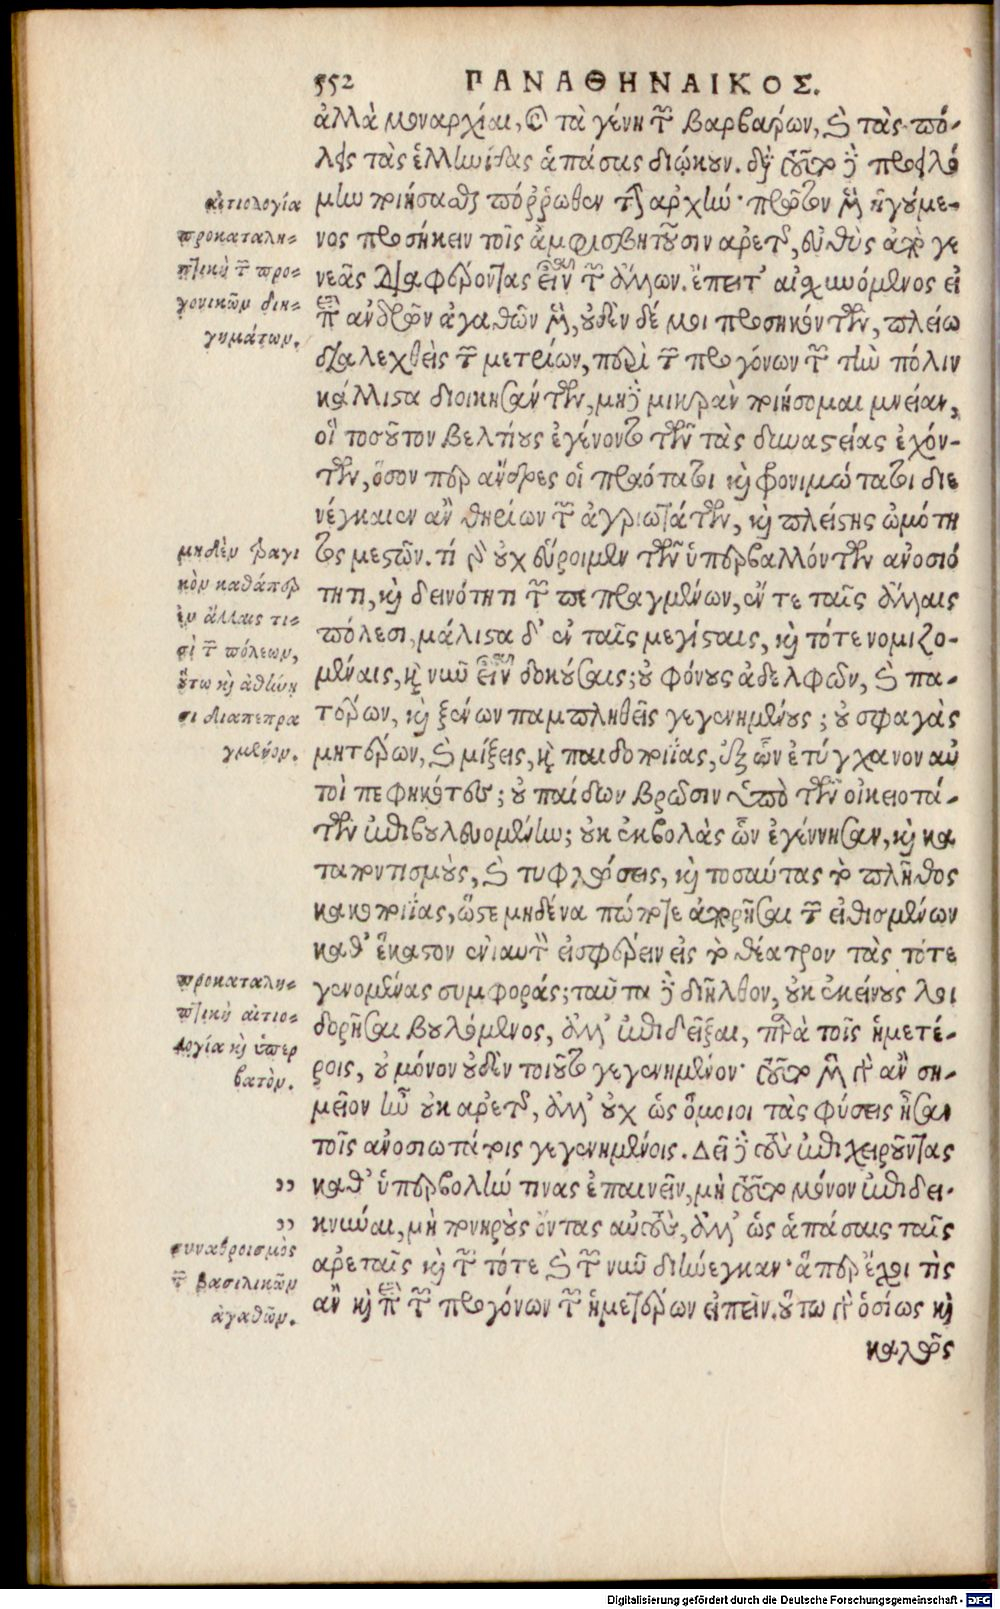 552 ΠΑΝΑΘΗΝΑΙΚΟΣ.
ἀλλὰ μοναρχίαι, καὶ τὰ γένη τῶν βαρβάρων, καὶ τὰς πό-
λεις τὰς ἑλληνίδας ἁπάσας διῴκουν. διὰ τοῦτο γὰρ προειλό
μην ποιήσασθαι πόῤῥωθεν τὴν ἀρχήν· πρῶτον μὲν ἡγούμε-
νος προσήκειν τοῖς ἀμφισβητοῦσιν ἀρετῆς, εὐθὺς ἀπὸ γε
νεᾶς διαφέροντας εἶναι τῶν ἄλλων. ἔπειτ' αἰσχυνόμενος εἰ
περὶ ἀνδρῶν ἀγαθῶν μὲν, οὐδὲν δέ μοι προσηκόντων, πλείω
διαλεχθεὶς τῶν μετρίων, περὶ τῶν προγόνων τῶν τὴν πόλιν
κάλλιστα διοικησάντων, μηδὲ μικρὰν ποιήσομαι μνείαν,
οἳ τοσοῦτον βελτίους ἐγένοντο τῶν τὰς δυναστείας ἐχόν-
των, ὅσον περ ἄνδρες οἱ πραότατοι καὶ φρονιμώτατοι διε
νέγκαιεν ἂν θηρίων τῶν ἀγριωτάτων, καὶ πλείστης ὠμότη
τος μεστῶν. τί γὰρ οὐχ εὕροιμεν τῶν ὑπερβαλλόντων ἀνοσιό
τητι, καὶ δεινότητι τῶν πεπραγμένων, ἔν τε ταῖς ἄλλαις
πόλεσι, μάλιστα δ' ἐν ταῖς μεγίσταις, καὶ τότε νομιζο-
μέναις, καὶ νῦν εἶναι δοκούσαις; οὐ φόνους ἀδελφῶν, καὶ πα-
τέρων, καὶ ξένων παμπληθεῖς γεγενημένους; οὐ σφαγὰς
μητέρων, καὶ μίξεις, καὶ παιδοποιΐας, ἐξ ὧν ἐτύγχανον αὐ
τοὶ πεφηκότες; οὐ παίδων βρῶσιν ὑπὸ τῶν οἰκειοτά-
των ἐπιβουλευομένην; οὐκ ἐκβολὰς ὧν ἐγέννησαν, καὶ κα
ταποντισμοὺς, καὶ τυφλώσεις, καὶ τοσαύτας τὸ πλῆθος
κακοποιΐας, ὥστε μηδένα πώποτε ἀπορῆσαι τῶν εἰθισμένων
καθ' ἕκαστον ἐνιαυτὸν εἰσφέρειν εἰς τὸ θέατρον τὰς τότε
γενομένας συμφοράς; ταῦτα δὲ διῆλθον, οὐκ ἐκείνους λοι
δορῆσαι βουλόμενος, ἀλλ' ἐπιδεῖξαι, παρὰ τοῖς ἡμετέ-
ροις, οὐ μόνον οὐδὲν τοιοῦτο γεγενημένον· τοῦτο μὲν γὰρ ἂν ση-
μεῖον ἦν οὐκ ἀρετῆς, ἀλλ' οὐχ ὡς ὅμοιοι τὰς φύσεις ἦσαν
τοῖς ἀνοσιωτάτοις γεγενημένοις. Δεῖ δὲ τοὺς ἐπιχειροῦντας
,, καθ' ὑπερβολήν τινας ἐπαινεῖν, μὴ τοῦτο μόνον ἐπιδει-
,, κνύναι, μὴ πονηροὺς ὄντας αὐτοὺς, ἀλλ' ὡς ἁπάσαις ταῖς
ἀρεταῖς καὶ τῶν τότε καὶ τῶν νῦν διήνεγκαν· ἅπερ ἔχοι τὶς
ἂν καὶ περὶ τῶν προγόνων τῶν ἡμετέρων εἰπεῖν. οὕτω γὰρ ὁσίως καὶ
καλῶς
αἰτιολογία
προκαταλη-
πτικὴ τῶν προ-
γονικῶν διη-
γημάτων.
μηδὲν τραγι
κὸν καθάπερ
ἐν ἄλλαις τι-
σὶ τῶν πόλεων,
οὕτω καὶ ἀθήνη
σι διαπεπρα
γμένον.
προκαταλη-
πτικὴ αἰτιο-
λογία καὶ ὑπερ
βατόν.
συναθροισμὸς
τῶν βασιλικῶν
ἀγαθῶν.
Digitalisierung gefördert durch die Deutsche Forschungsgemeinschaft - DFG